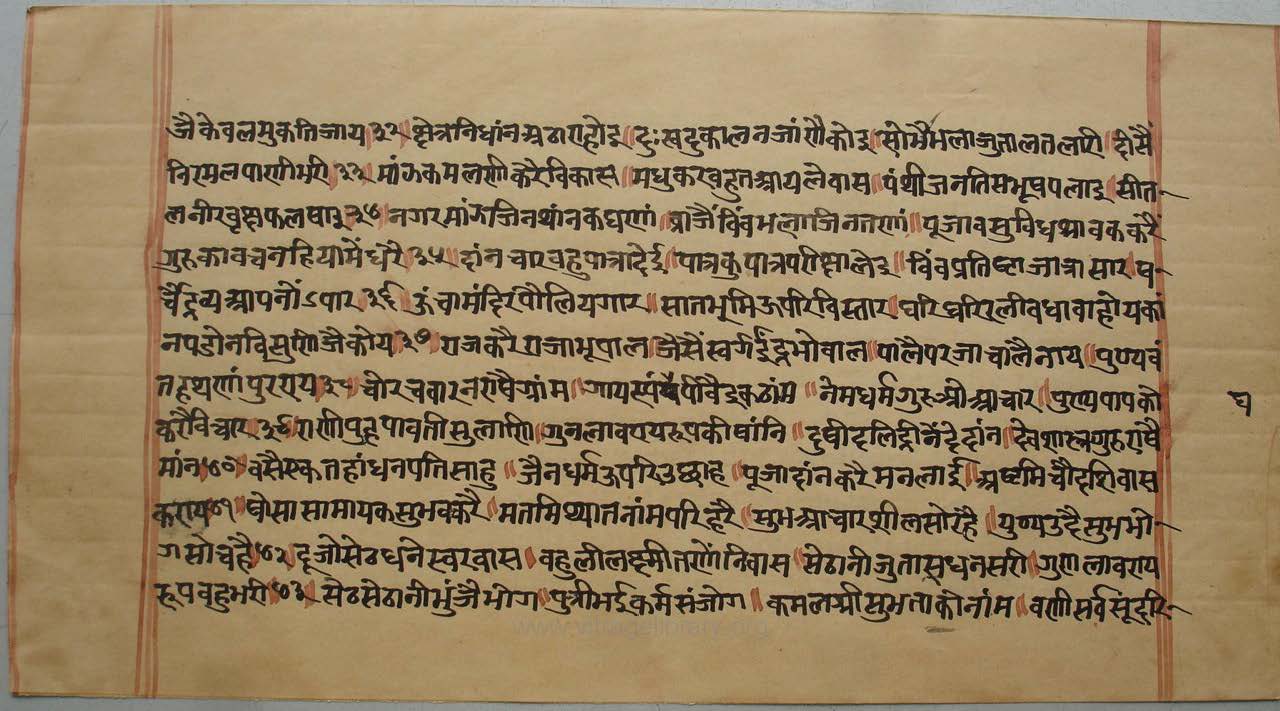 जैकेवलमुकतिजाय ३२ ॥ क्षेत्रनिधांनअठाराहोइ ॥ दुःखदुकालनजांणौकोइ ॥ सोभैभलाजुतालतलारी ॥ दीसैं
निरमलपाणीभरी ३३ ॥ मांझकमलणीकरैविकास ॥ मधुकरबहुतआयलेवास ॥ पंथीजनतिसभूषपलाइ ॥ सीत-
लनीरवृक्षफलषाइ ३४ ॥ नगरमांझेजिनथांनकघणां ॥ ब्राजैंबिंबभलाजिनतणां ॥ पूजावसुविधश्रावककरैं
गुरुकावचनहियामेंधरै ३५ ॥ दांनचारबहुपात्रांदेई ॥ पात्रकुपात्रपरीक्षालेइ ॥ बिंबप्रतिष्टाजात्रासार ष-
र्चैद्रव्यआपनोंऽपार ३६ ॥ ऊंचामंदिरपौलियगार ॥ सातभूमिऊपरिविस्तार ॥ घरिघरिरलीबधावाहोय ॥ कां
नपडोनविसुणिजैकोय ३७ ॥ राजकरैराजाभूपाल ॥ जैसैंस्वर्गइंद्रभोवाल ॥ पालैपरजाचालैन्याय ॥ पुण्यवं
तहथणांपुरराय ३८ ॥ चोरचवारनराषैग्रांम ॥ गायस्यंघपीवैइकठांम ॥ नेमधर्मगुरुश्रीआचार ॥ पुण्यपापको
करैविचार ३९ ॥ राणीपुहपावतीसुजाणि ॥ गुनलावण्यरूपकीषांनि ॥ दुषीदलिद्रीनेंदेदांन ॥ देवशास्त्रगुरुराषै
मांन ४० ॥ वसैएकतहांधनपतिसाहु ॥ जैनधर्मऊपरिउछाह ॥ पूजादांनकरैमनलाई ॥ अष्टमिचौदशिवास
कराय ४१ ॥ पोसासामायकसुभक्करै ॥ मतमिथ्यातनांमपरिहरै ॥ सुभआचारशीलसोरहै ॥ पुण्यउदैसुभभो-
गसोचहै ४२ ॥ दूजोसेठधनेस्वरवास ॥ बहुलीलक्ष्मीतणोंनिवास ॥ सेठानीजुतासुधनसरी ॥ गुणलावण्य
रूपबहुभरी ४३ ॥ सेठसेठानीभुंजैभोग ॥ पुत्रीभईकर्मसंजोग ॥ कमलश्रीसुभताकोनांम ॥ वणीसर्वसूंदरि-
www.vitragelibrary.org